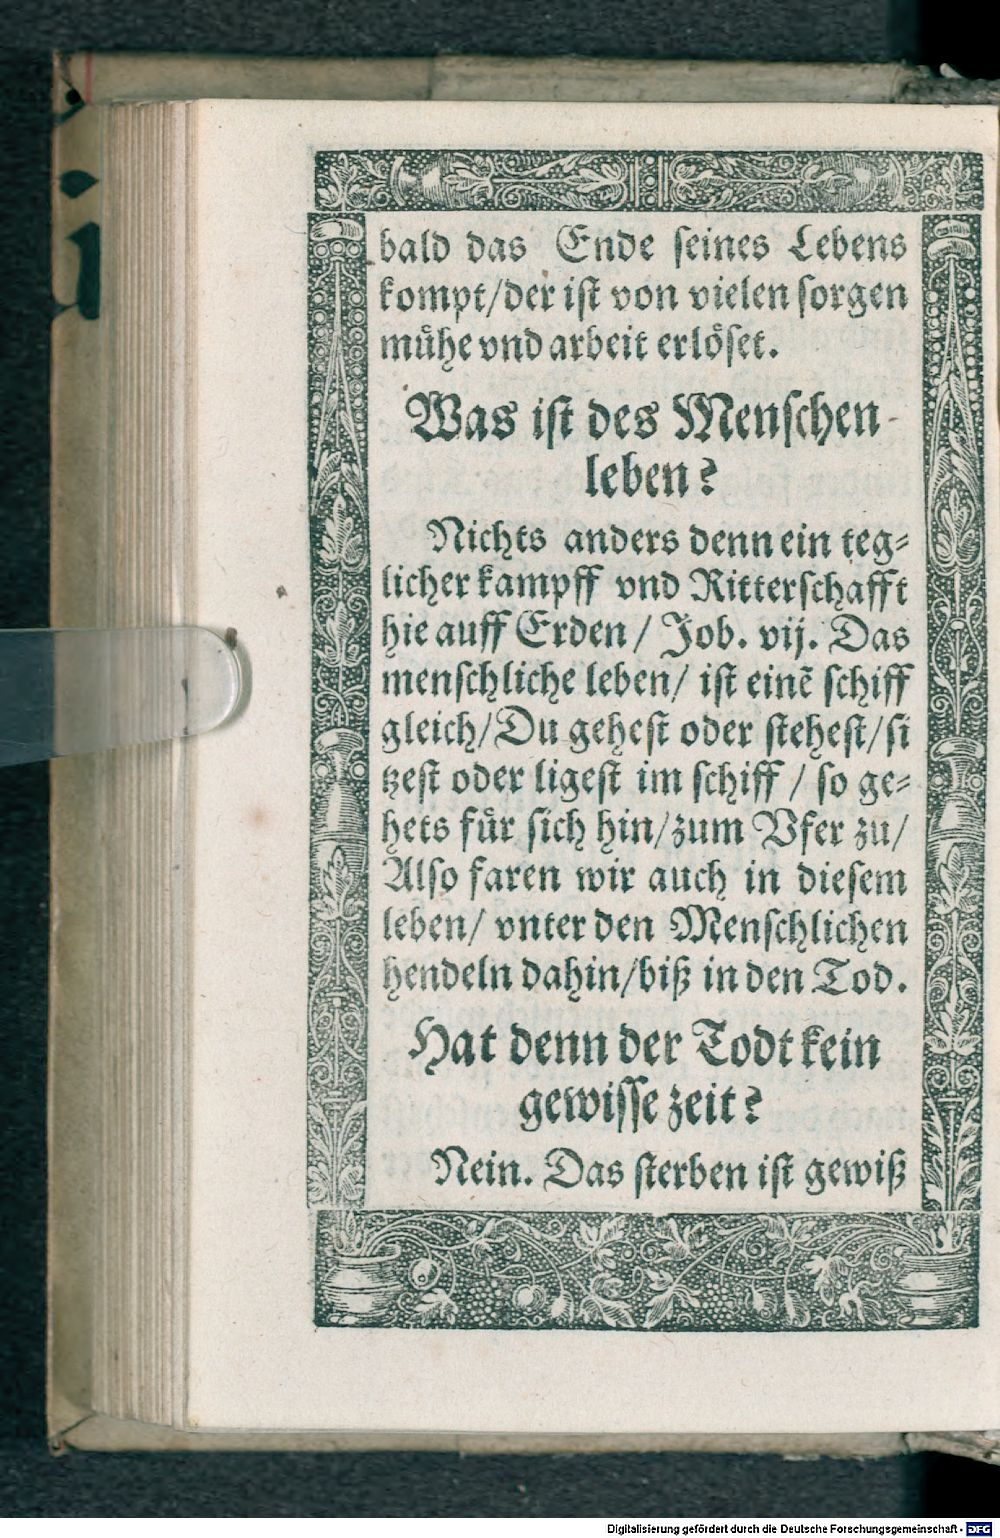 bald das Ende ſeines Lebens
kompt/der iſt von vielen ſorgen
muͤhe vnd arbeit erloͤſet.
Was iſt des Menſchen
leben?
Nichts anders denn ein teg⸗
licher kampff vnd Ritterſchafft
hie auff Erden / Job. vij. Das
menſchliche leben/ iſt einẽ ſchiff
gleich/Du geheſt oder ſteheſt/ſi
tzeſt oder ligeſt im ſchiff / ſo ge⸗
hets fuͤr ſich hin/zum Vfer zu/
Alſo faren wir auch in dieſem
leben/ vnter den Menſchlichen
hendeln dahin/biß in den Tod.
Hat denn der Todt kein
gewiſſe zeit?
Nein. Das ſterben iſt gewiß
Digitalisierung gefördert durch die Deutsche Forschungsgemeinschaft - DFG